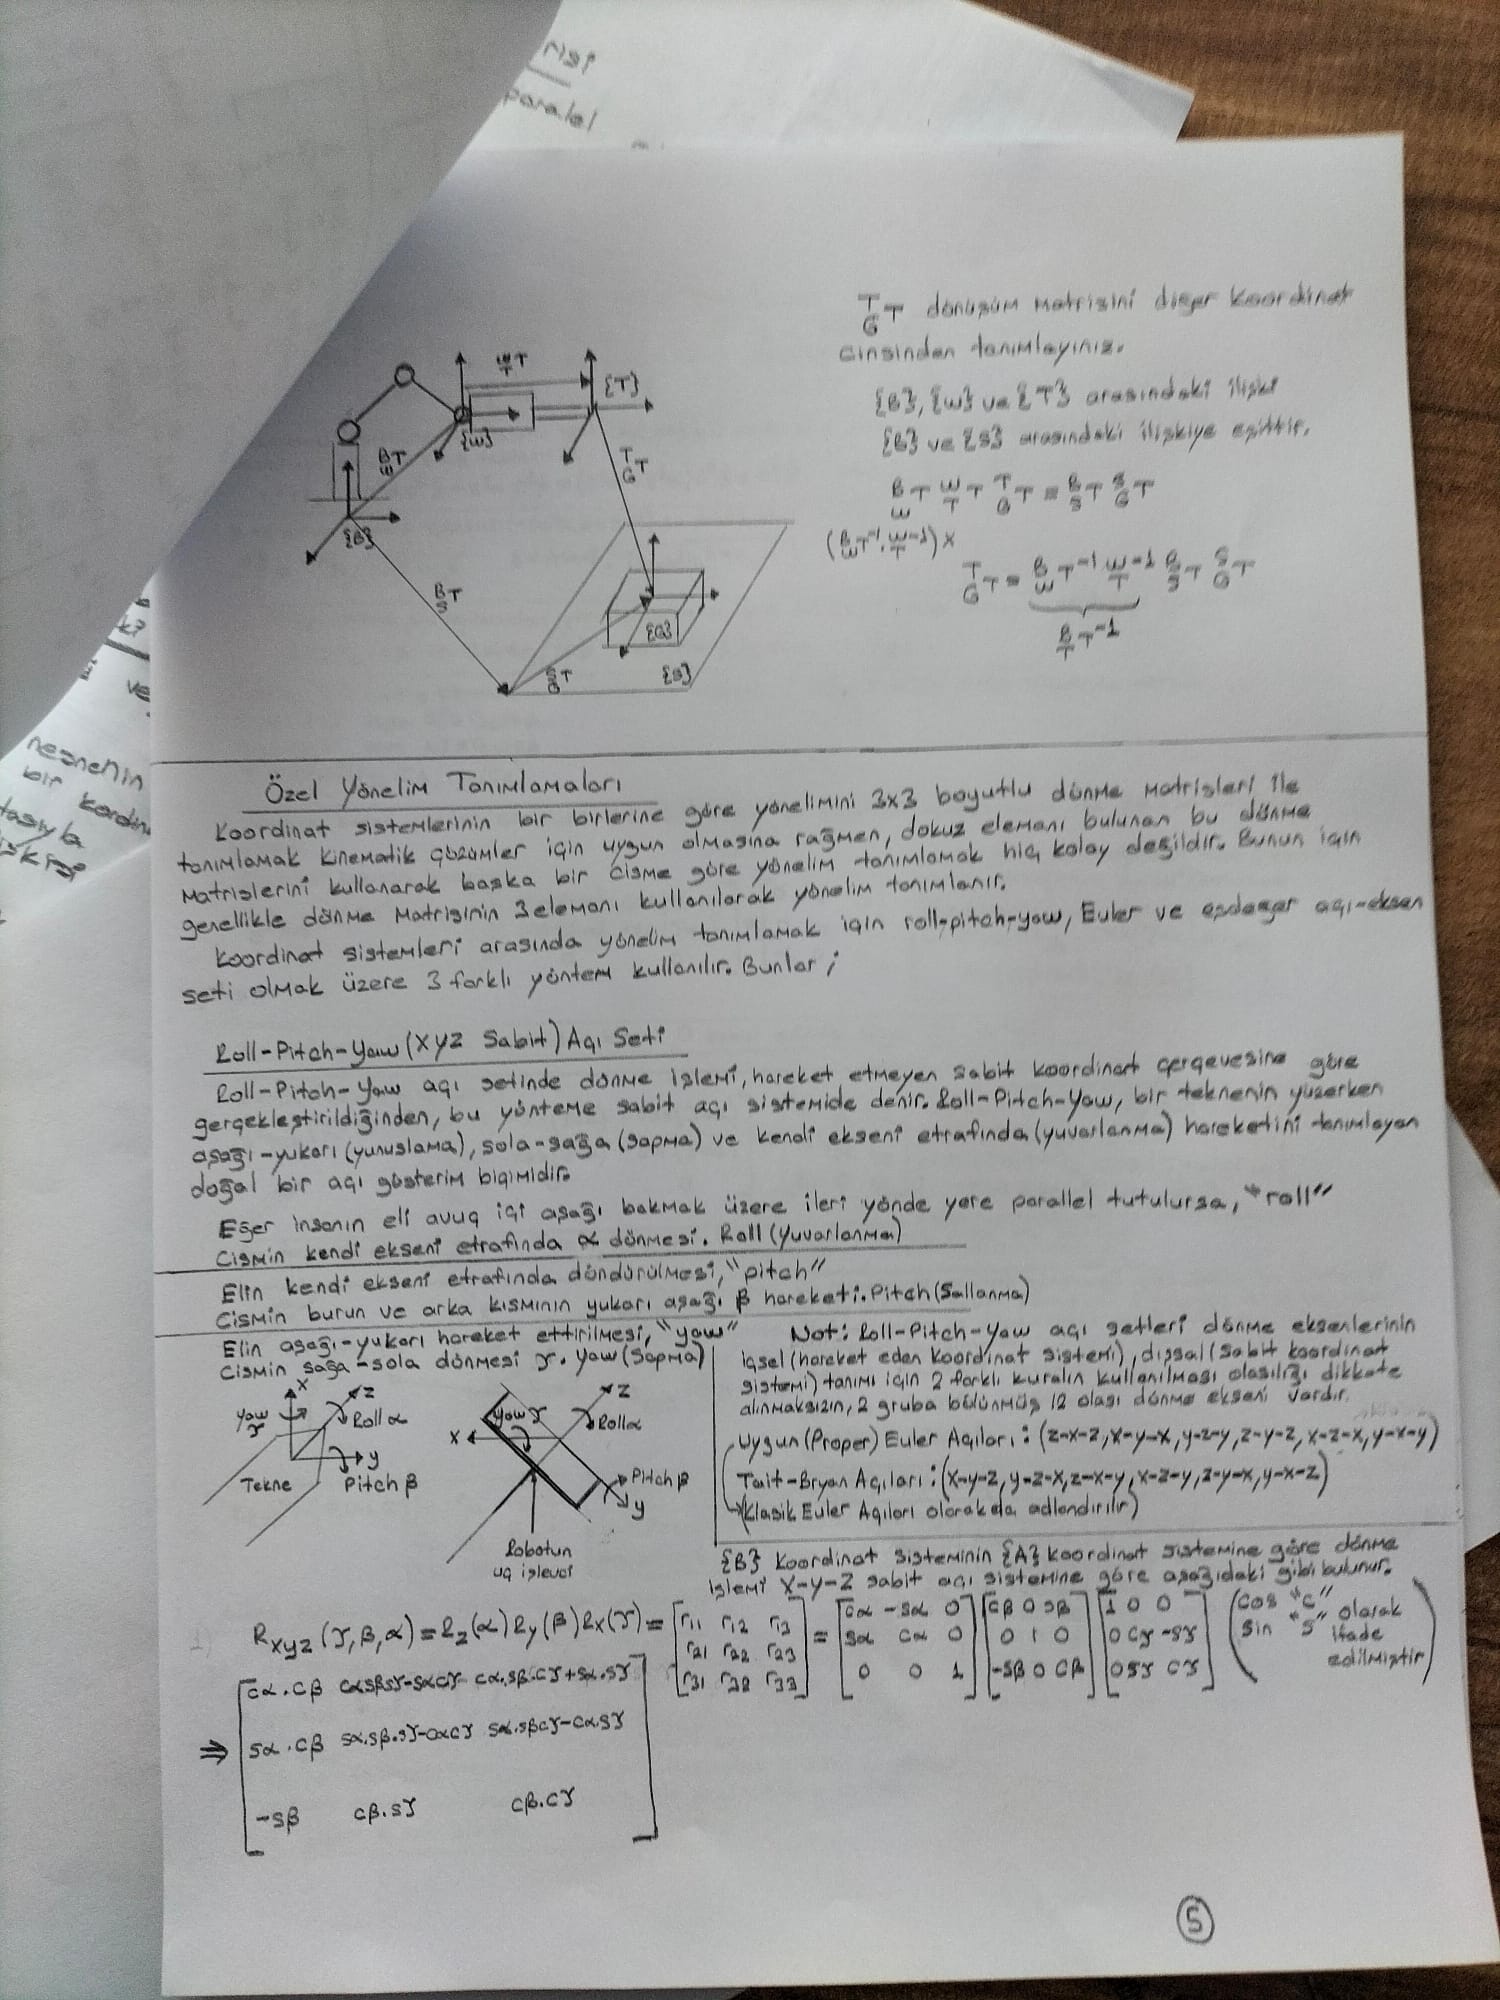 risi
paralel
T/G T dönüşüm matrisini diğer koordinat
cinsinden tanımlayınız.
{B}, {W} ve {T} arasındaki ilişki
{B} ve {S} arasındaki ilişkiye eşittir.
B/W T W/T T T/G T = B/S T S/G T
(B/W T⁻¹ . W/T ⁻¹) x
T/G T = B/W T⁻¹ W/T ⁻¹ B/S T S/G T
B/T T⁻¹
W/T T
{T}
{W}
B/W T
T/G T
{B}
B/S T
{G}
S/G T
{S}
k?
ve
nesnenin
bir kordin
tasıyla
Özel Yönelim Tanımlamaları
Koordinat sistemlerinin bir birlerine göre yönelimini 3x3 boyutlu dönme matrisleri ile
tanımlamak kinematik çözümler için uygun olmasına rağmen, dokuz elemanı bulunan bu dönme
matrislerini kullanarak başka bir cisme göre yönelim tanımlamak hiç kolay değildir. Bunun için
genellikle dönme matrisinin 3 elemanı kullanılarak yönelim tanımlanır.
Koordinat sistemleri arasında yönelim tanımlamak için roll-pitch-yaw, Euler ve eşdeğer açı-eksen
seti olmak üzere 3 farklı yöntem kullanılır. Bunlar ;
Roll-Pitch-Yaw (XYZ Sabit) Açı Seti
Roll-Pitch-Yaw açı setinde dönme işlemi, hareket etmeyen sabit koordinat çerçevesine göre
gerçekleştirildiğinden, bu yönteme sabit açı sistemide denir. Roll-Pitch-Yaw, bir teknenin yüzerken
aşağı-yukarı (yunuslama), sola-sağa (sapma) ve kendi ekseni etrafında (yuvarlanma) hareketini tanımlayan
doğal bir açı gösterim biçimidir.
Eğer insanın eli avuç içi aşağı bakmak üzere ileri yönde yere parallel tutulursa, "roll"
Cismin kendi ekseni etrafında α dönmesi. Roll (Yuvarlanma)
Elin kendi ekseni etrafında döndürülmesi, "pitch"
Cismin burun ve arka kısmının yukarı aşağı β hareketi. Pitch (Sallanma)
Elin aşağı-yukarı hareket ettirilmesi, "yaw"
Cismin sağa-sola dönmesi γ. Yaw (Sapma)
Not: Roll-Pitch-Yaw açı setleri dönme eksenlerinin
içsel (hareket eden koordinat sistemi), dışsal (sabit koordinat
sistemi) tanımı için 2 farklı kuralın kullanılması olasılığı dikkate
alınmaksızın, 2 gruba bölünmüş 12 olası dönme ekseni vardır.
Uygun (Proper) Euler Açıları : (z-x-z, x-y-x, y-z-y, z-y-z, x-z-x, y-x-y)
Tait-Bryan Açıları : (x-y-z, y-z-x, z-x-y, x-z-y, z-y-x, y-x-z)
(Klasik Euler Açıları olarakda adlendırılır)
X
Z
Yaw γ
Roll α
y
Tekne
Pitch β
Z
Yaw γ
Roll α
X
Pitch β
y
Robotun
uç işlevci
{B} Koordinat sisteminin {A} koordinat sistemine göre dönme
işlemi X-Y-Z sabit açı sistemine göre aşağıdaki gibi bulunur.
Rxyz (γ, β, α) = Rz(α) Ry(β) Rx(γ) = [r11 r12 r13; r21 r22 r23; r31 r32 r33] = [cα -sα 0; sα cα 0; 0 0 1] [cβ 0 sβ; 0 1 0; -sβ 0 cβ] [1 0 0; 0 cγ -sγ; 0 sγ cγ]
(cos "c"
sin "s" olarak
ifade
edilmiştir)
⇒ [cα.cβ cαsβsγ-sαcγ cα.sβ.cγ+sα.sγ
sα.cβ sα.sβ.sγ-cαcγ sα.sβcγ-cα.sγ
-sβ cβ.sγ cβ.cγ]
5